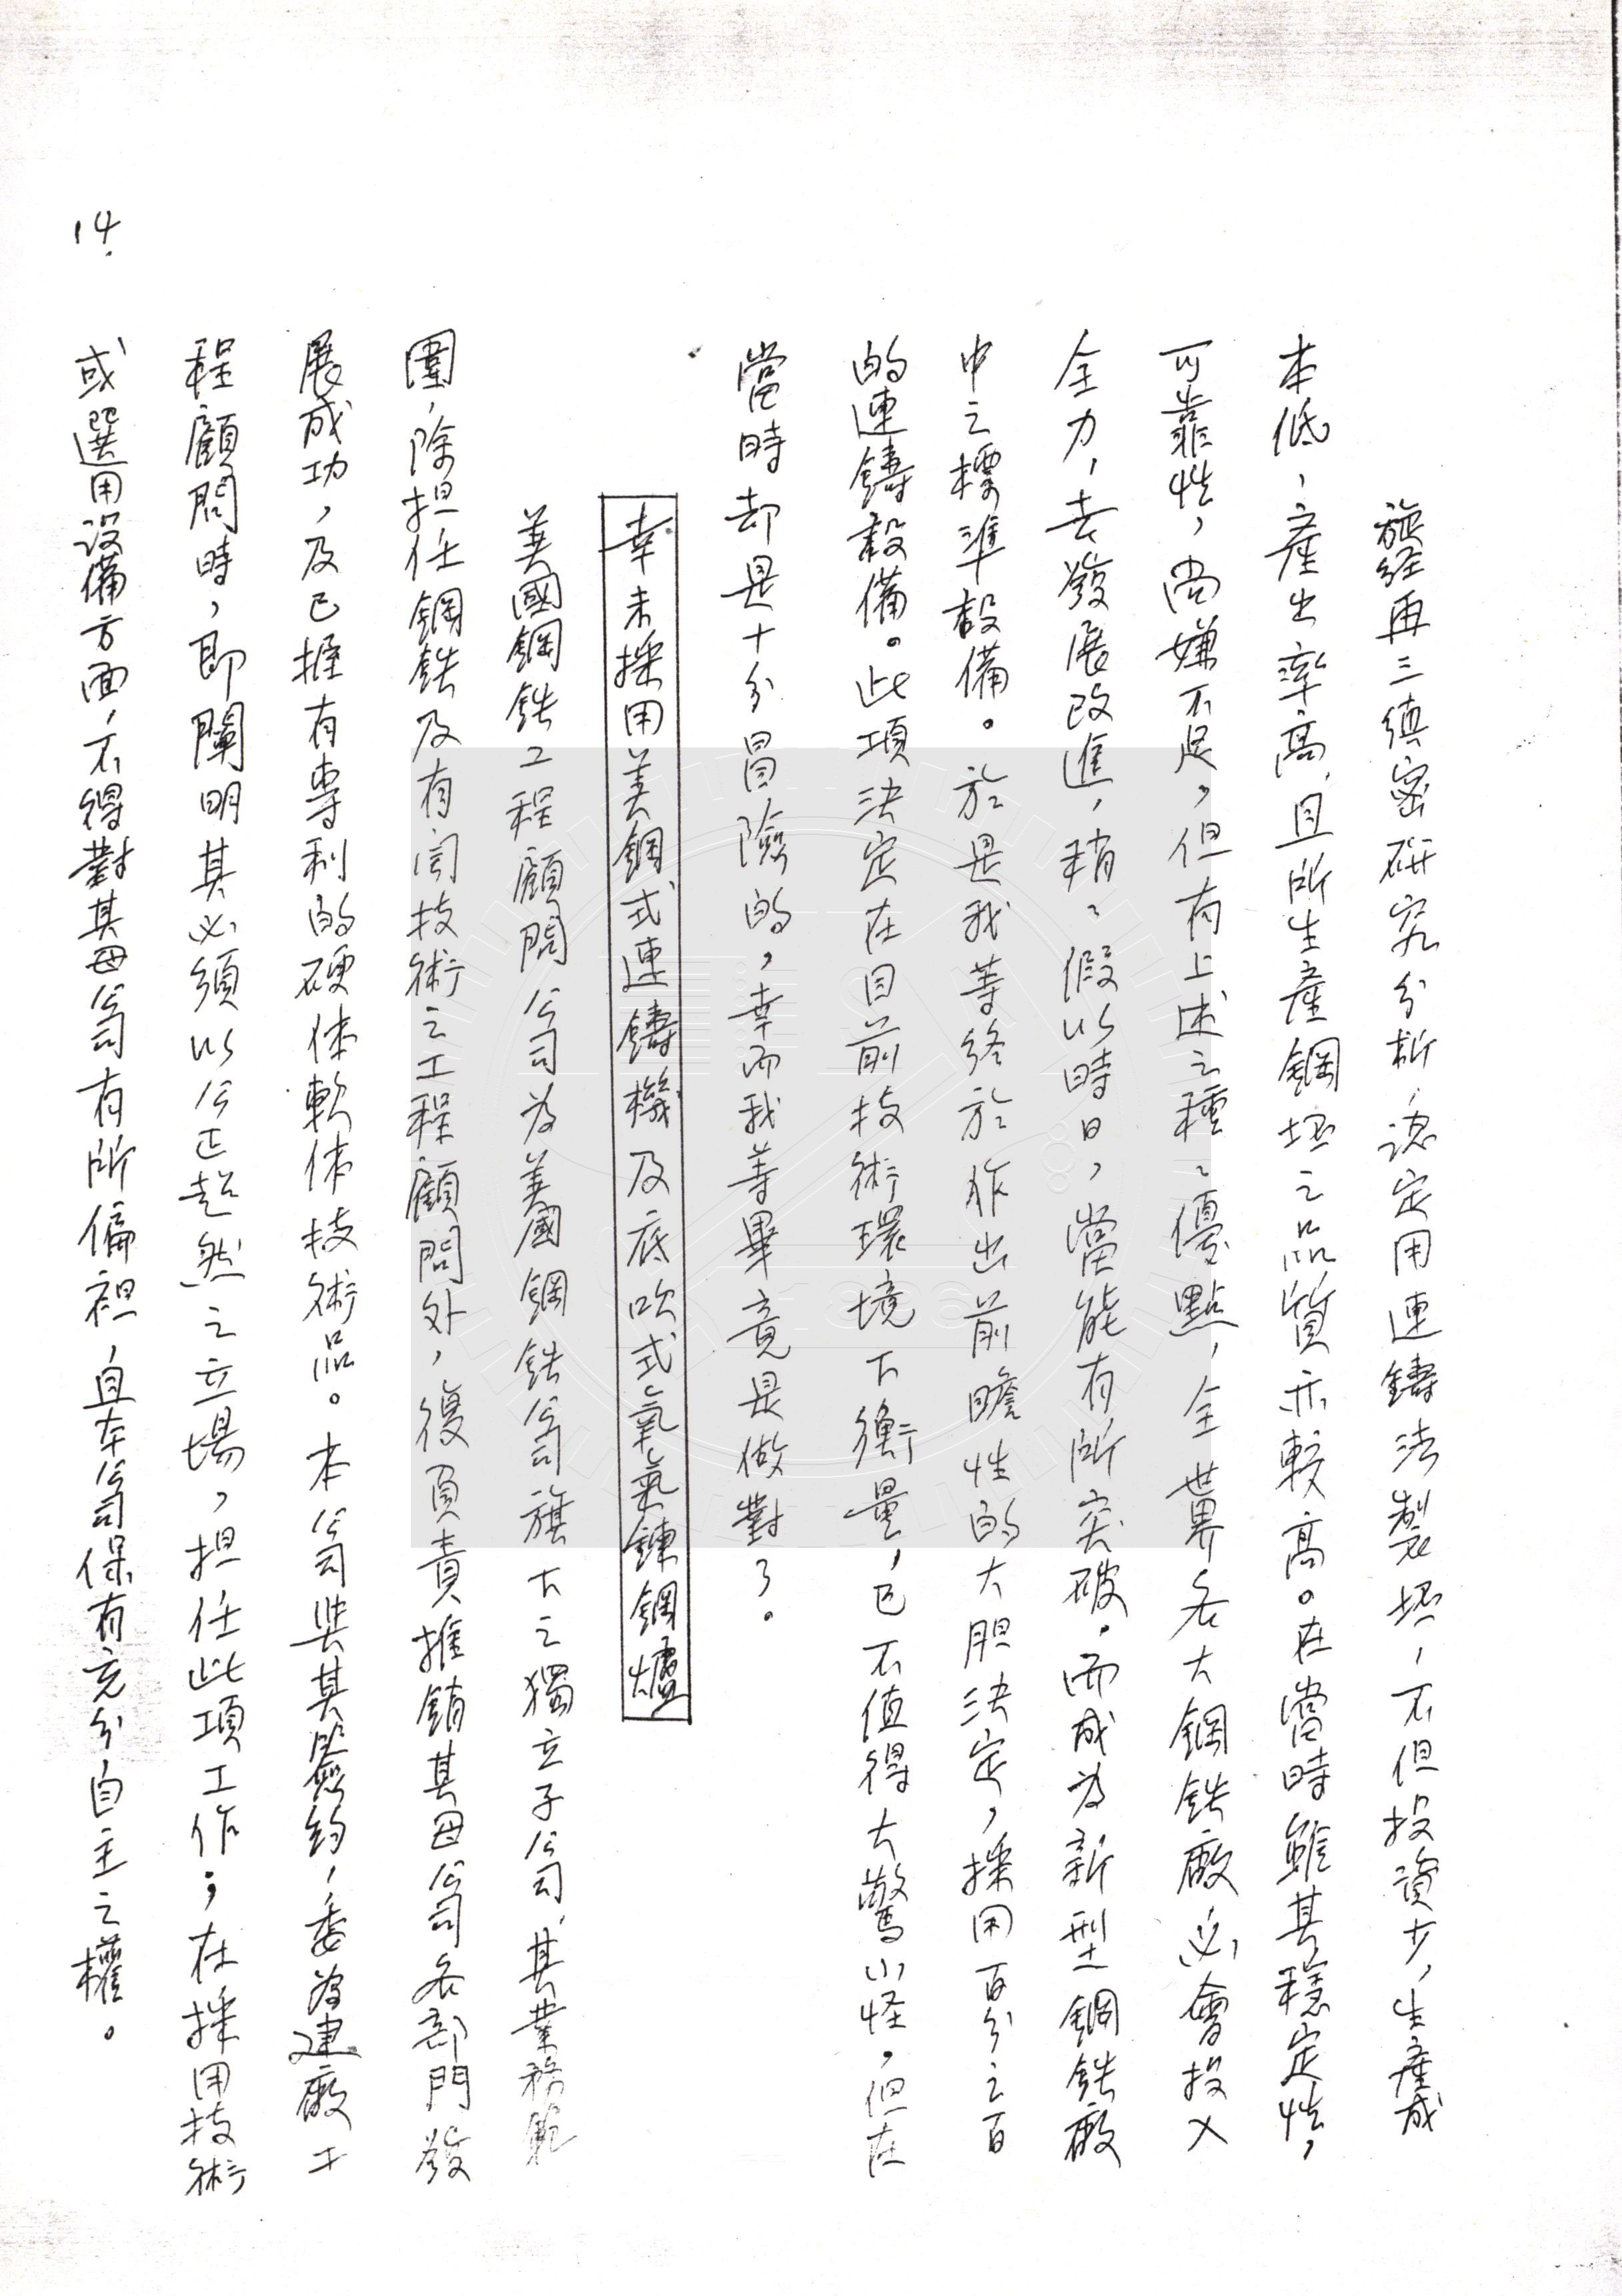 旋經再三縝密研究分析，認定用連鑄法製坯，不但投資少，生產成
本低，產出率高，且所生產鋼坯之品質亦較高。在當時雖其穩定性，
可靠性，尚嫌不足，但有上述之種種優點，全世界各大鋼鉄廠必會投入
全力，去發展改進，稍稍假以時日，當能有所突破，而成為新型鋼鉄廠
中之標準設備。於是我等終於作出前瞻性的大胆決定，採用百分之百
的連鑄設備。此項決定在目前技術環境下衡量，已不值得大驚小怪，但在
當時却是十分冒險的，幸而我等畢竟是做對了。
幸未採用美鋼式連鑄機及底吹式氧氣鍊鋼爐
美國鋼鉄工程顧問公司為美國鋼鉄公司旗下之獨立子公司，其業務範
圍，除担任鋼鉄及有関技術之工程顧問外，復負責推銷其母公司各部門發
展成功，及已擁有專利的硬体軟体技術品。本公司與其簽約，委為建廠工
程顧問時，即闡明其必須以公正超然之立場，担任此項工作；在採用技術
或選用設備方面，不得對其母公司有所偏袒，且本公司保有充分自主之權。
14.